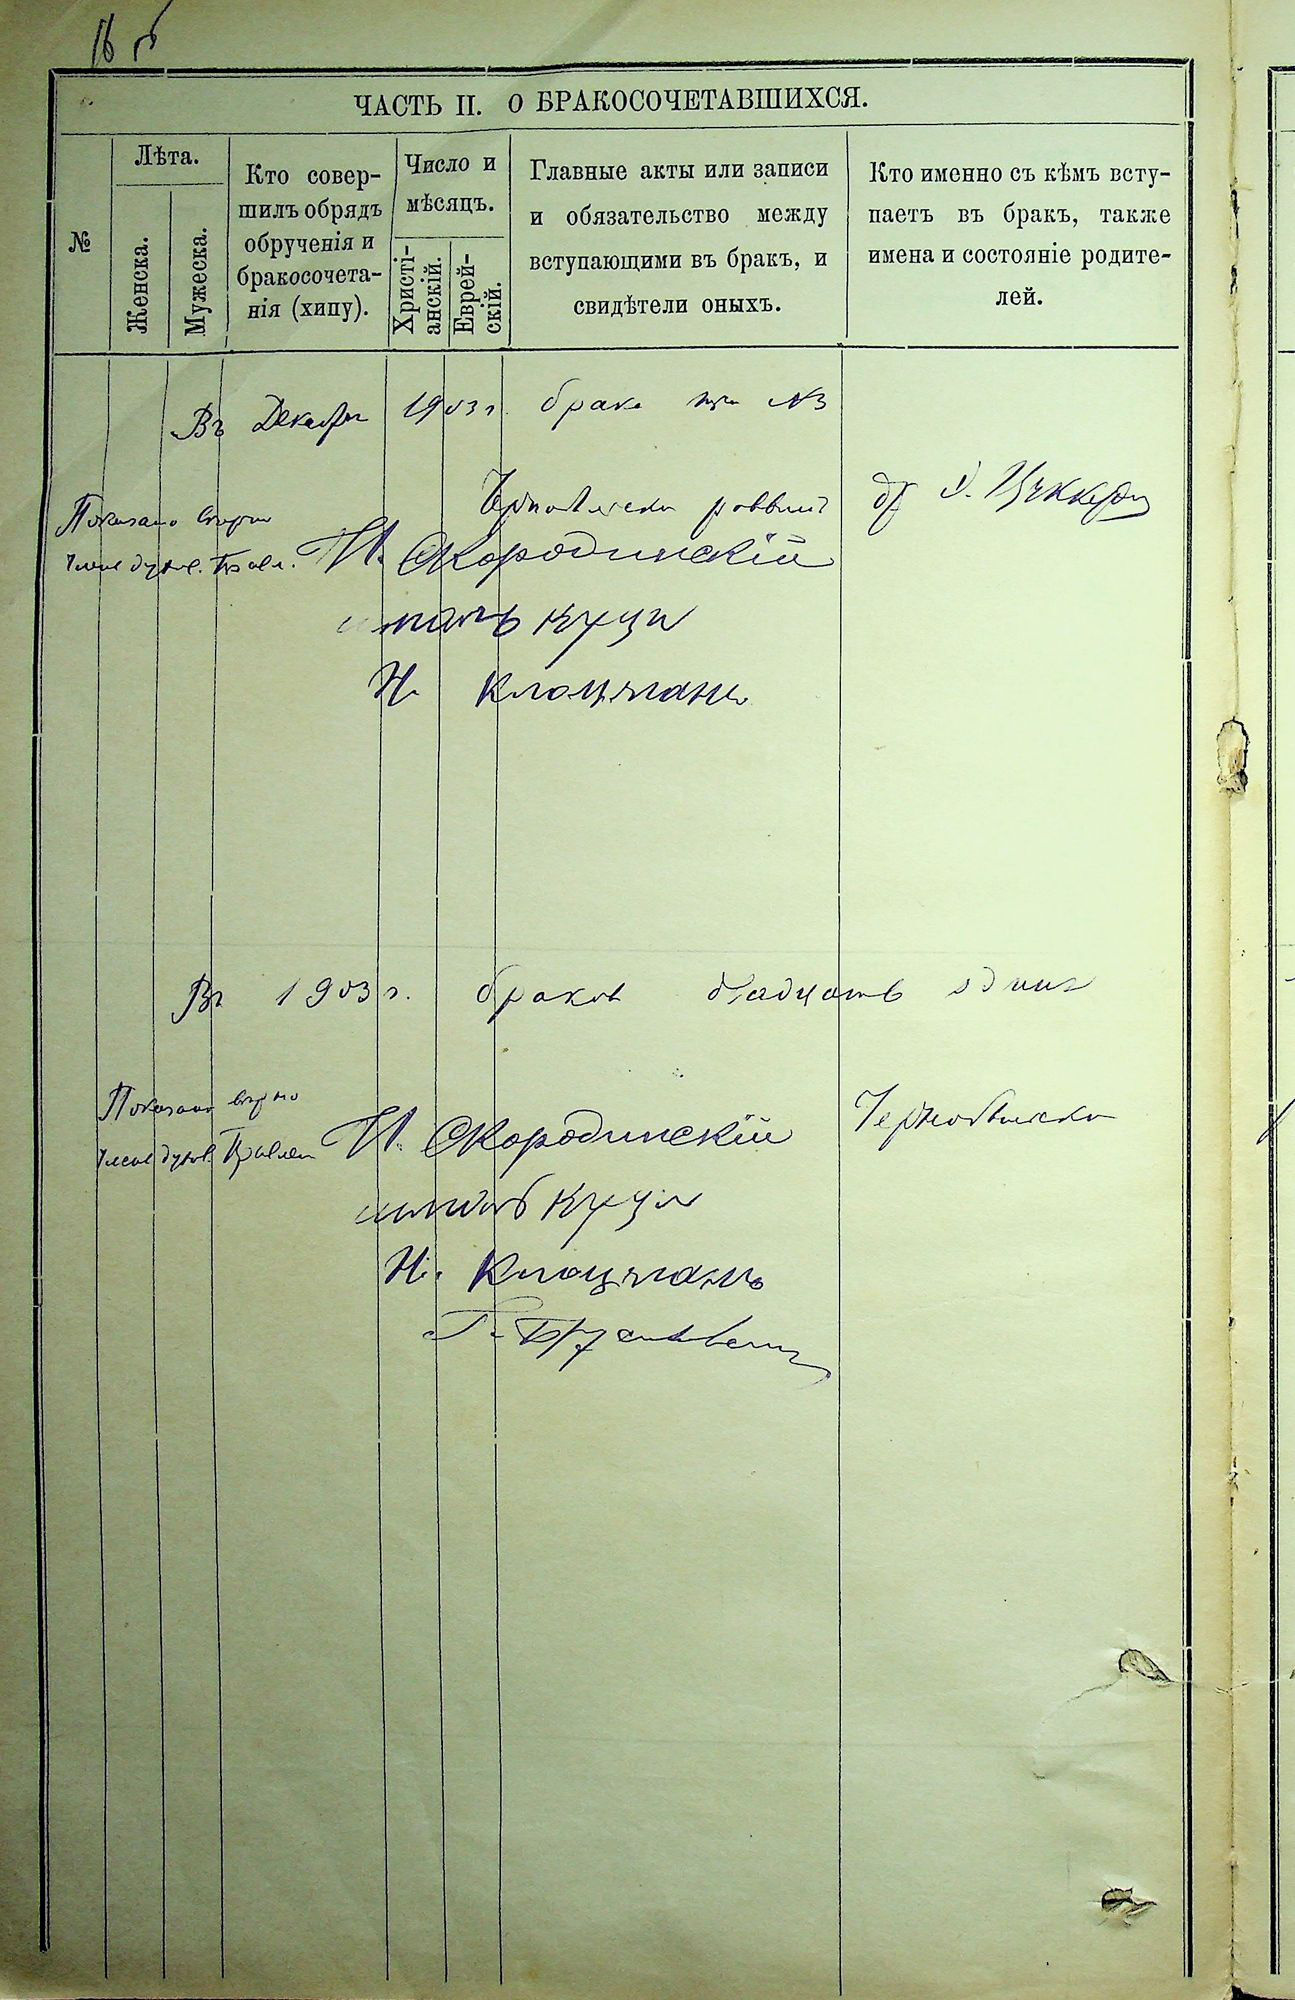 16 об
ЧАСТЬ II. О БРАКОСОЧЕТАВШИХСЯ.
№
Лѣта.
Женска.
Мужеска.
Кто совер-
шилъ обрядъ
обрученія и
бракосочета-
нія (хипу).
Число и
мѣсяцъ.
Христі-
анскій.
Еврей-
скій.
Главные акты или записи
и обязательство между
вступающими въ бракъ, и
свидѣтели оныхъ.
Кто именно съ кѣмъ всту-
паетъ въ бракъ, также
имена и состояніе родите-
лей.
Въ Декабрѣ 1903 г. брака три №3
Показано вѣрно
Члены духов. Правл. И. Скородинскій
Куци
Н. Клоцманъ
Въ 1903 г. браков двадцать один
Показано вѣрно
Члены духов. Правлен И. Скородинскій
Куци
Н. Клоцманъ